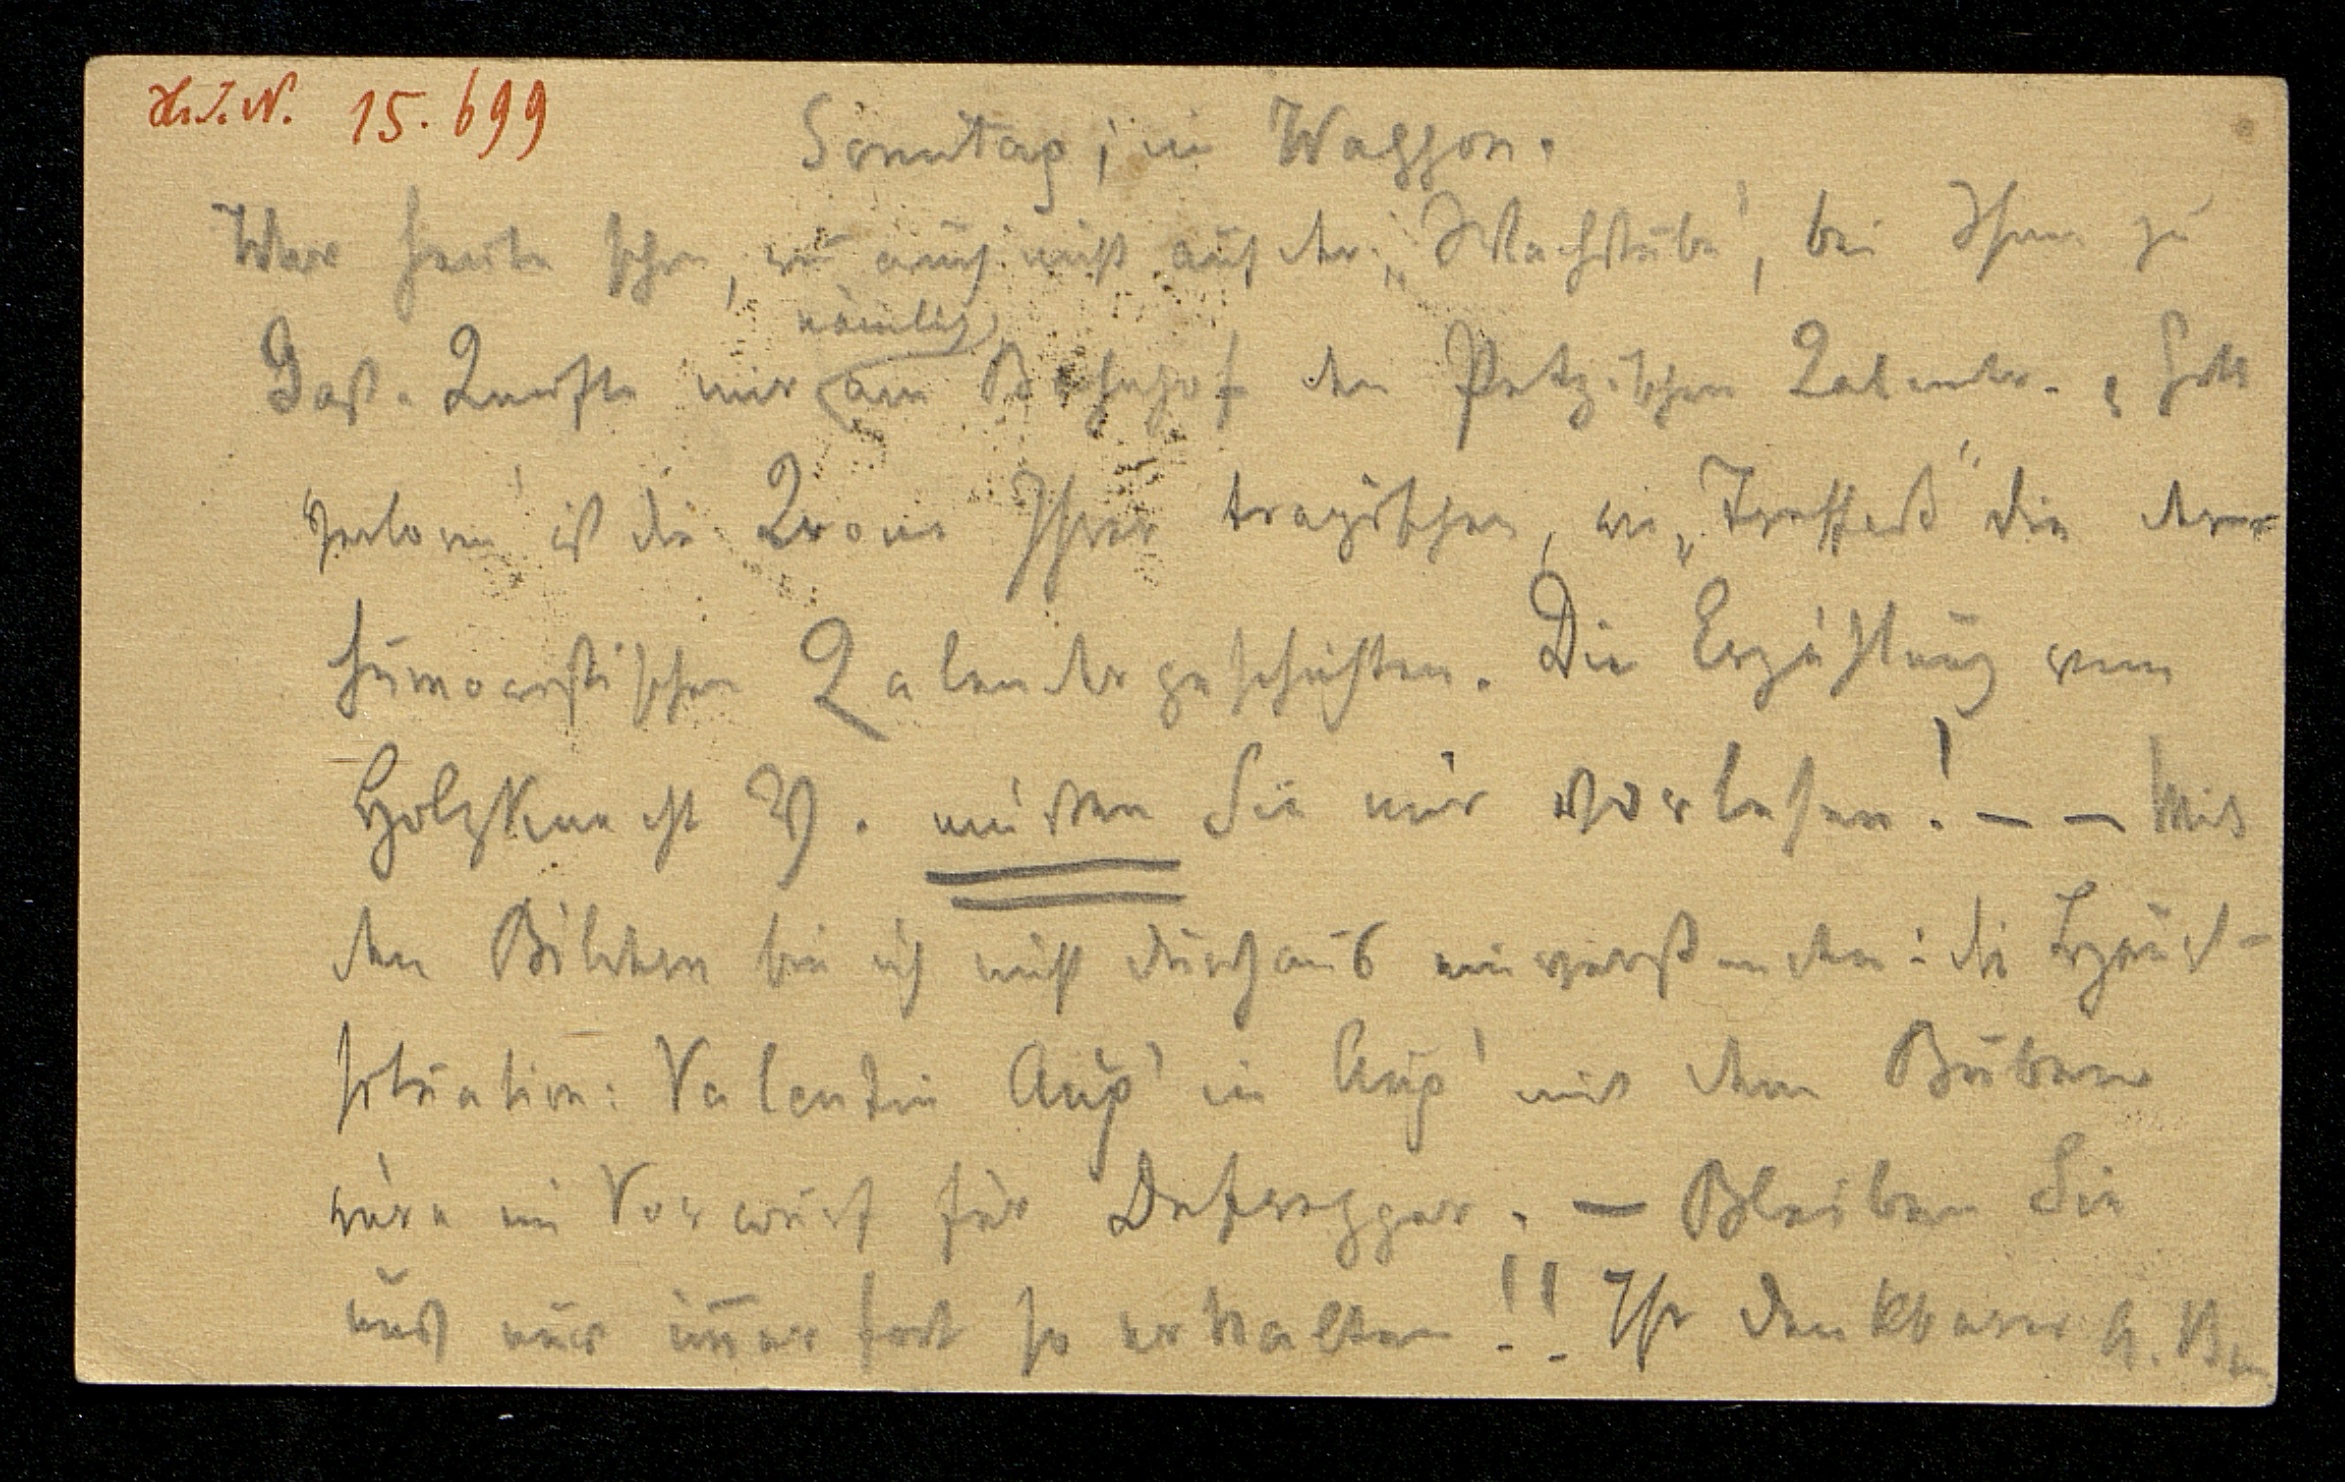 H.I.N. 15.699
Sonntag, im Waggon.
War heute schon, wenn auch nicht auf der „Wachstube', bei Ihnen zu
Gast. Kaufte mir nämlich am Bahnhof den Patzischen Kalender. „Gott
verloren' ist die Krone Ihrer tragischen, wie „Treffaß" die der
humoristischen Kalendergeschichten. Die Erzählung vom
Holzknecht V. müssen Sie mir vorlesen! – – Mit
den Bildern bin ich nicht durchaus einverstanden: die Haupt-
situation: Valentin Aug' in Aug' mit dem Buben
wäre ein Vorwurf für Defregger. – Bleiben Sie
uns nur immer fort so erhalten!! Ihr dankbarer A. B